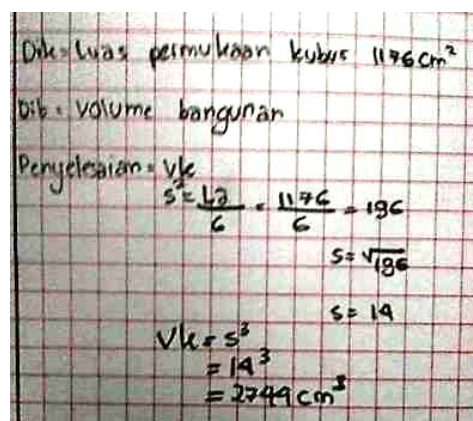 Dik = Luas permukaan kubus 1176 cm²
Dib = Volume bangunan
Penyelesaian = Vk
s² = La/6 = 1176/6 = 196
s = √196
s = 14
Vk = s³
= 14³
= 2744 cm³